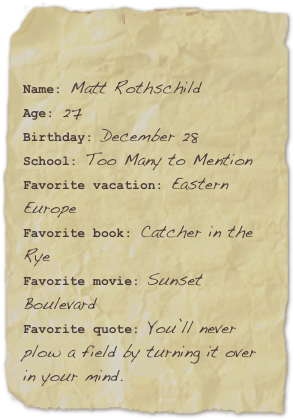 Name: Matt Rothschild
Age: 27
Birthday: December 28
School: Too Many to Mention
Favorite vacation: Eastern
Europe
Favorite book: Catcher in the
Rye
Favorite movie: Sunset
Boulevard
Favorite quote: You'll never
plow a field by turning it over
in your mind.